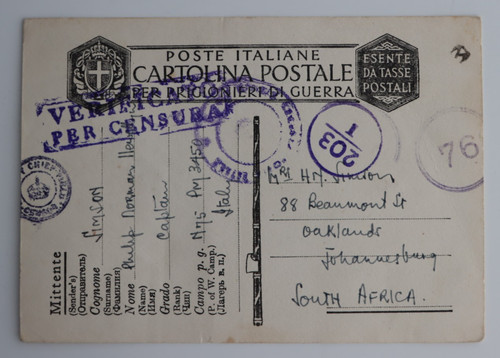 POSTE ITALIANE
CARTOLINA POSTALE
PER PRIGIONIERI DI GUERRA
ESENTE
DA TASSE
POSTALI
VERIFICATO
PER CENSURA
203
1
76
CHIEF
Mittente
(Sender's)
(Отправитель)
Cognome SIMSON
(Surname)
(Фамилия)
Nome Philip Norman
(Name)
(Имя)
Grado Captain
(Rank)
(Чин)
Campo p. g. N75 PM 3450
(P. of W. Camp.) Italy
(Лагерь в. п.)
88 Beaumont St
Oaklands
Johannesburg
SOUTH AFRICA.